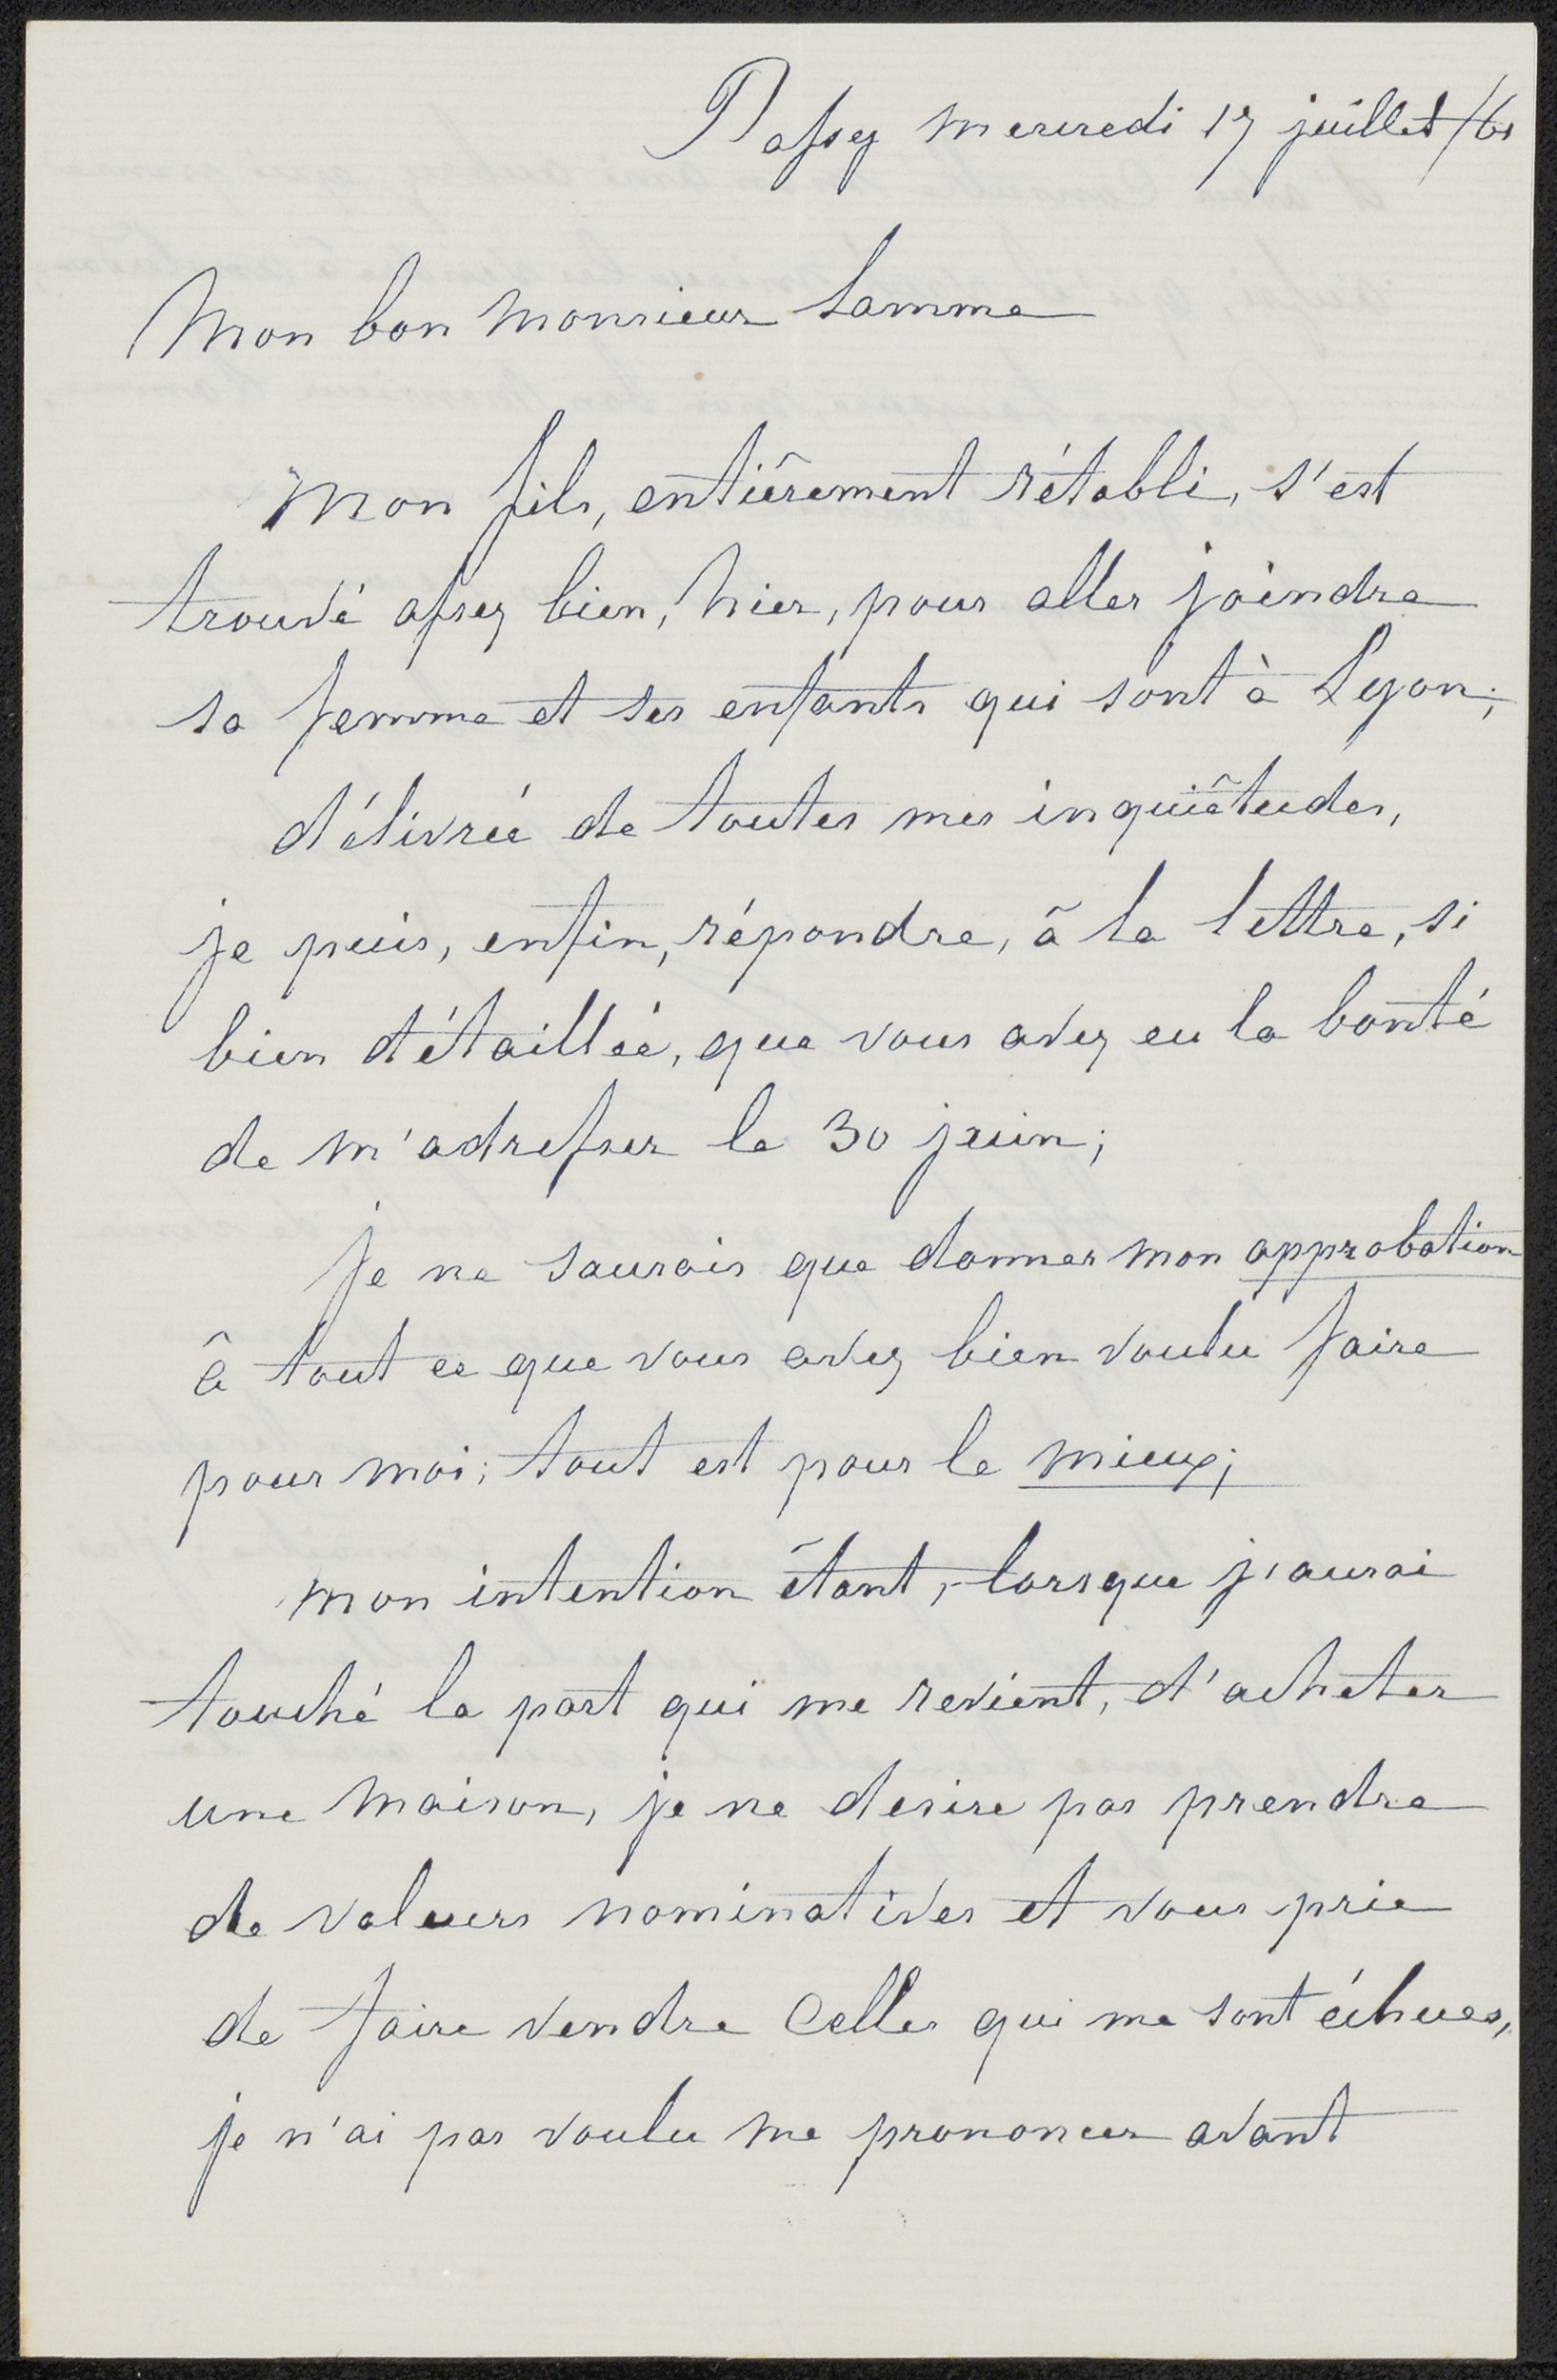 Passy mercredi 17 juillet /61
Mon bon Monsieur Lamme
Mon fils, entièrement rétabli, s'est
trouvé assez bien, hier, pour aller joindre
sa femme et ses enfants qui sont à Lyon;
délivrée de toutes mes inquiétudes,
je puis, enfin, répondre, à la lettre, si
bien détaillée, que vous avez eu la bonté
de m'adresser le 30 juin;
je ne saurais que donner mon approbation
à tout ce que vous avez bien voulu faire
pour moi; tout est pour le mieux;
mon intention étant, lorsque j'aurai
touché la part qui me revient, d'acheter
une maison, je ne desire pas prendre
de valeurs nominatives et vous prie
de faire vendre Celles qui me sont échues,
je n'ai pas voulu me prononcer avant